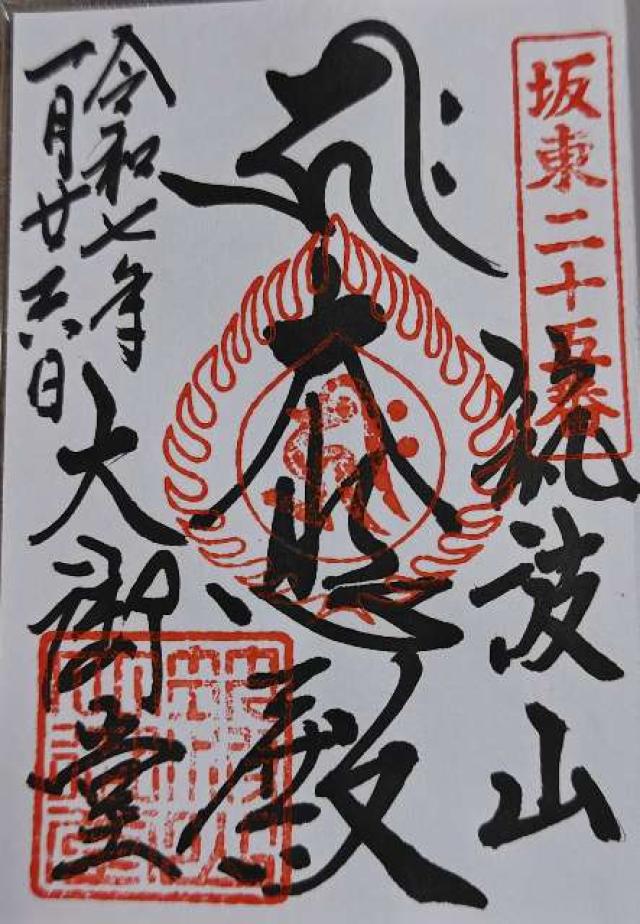 坂東二十五番
筑波山
大悲殿
大御堂
令和七年
一月廿六日